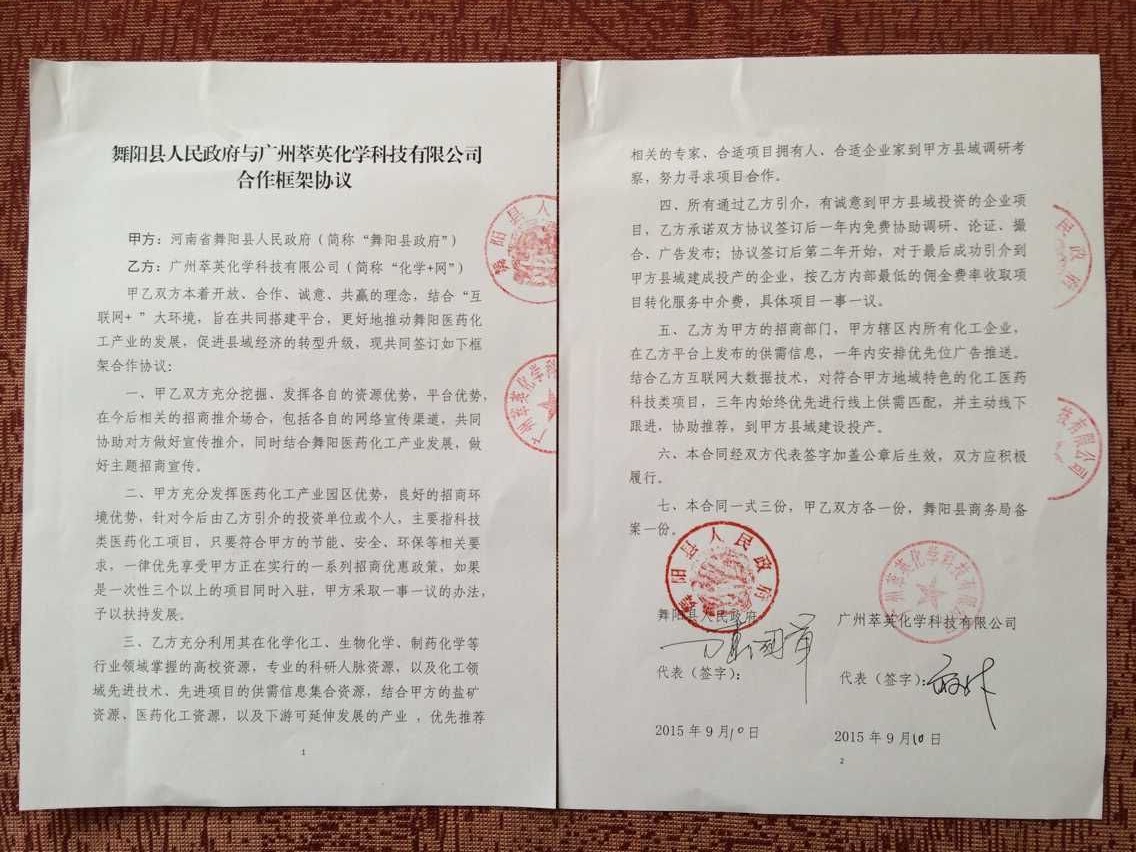 舞阳县人民政府与广州萃英化学科技有限公司
合作框架协议
甲方：河南省舞阳县人民政府（简称“舞阳县政府”）
乙方：广州萃英化学科技有限公司（简称“化学+网”）
甲乙双方本着开放、合作、诚意、共赢的理念，结合“互
联网+ ”大环境，旨在共同搭建平台，更好地推动舞阳医药化
工产业的发展，促进县域经济的转型升级，现共同签订如下框
架合作协议：
一、甲乙双方充分挖掘、发挥各自的资源优势，平台优势，
在今后相关的招商推介场合，包括各自的网络宣传渠道，共同
协助对方做好宣传推介，同时结合舞阳医药化工产业发展，做
好主题招商宣传。
二、甲方充分发挥医药化工产业园区优势，良好的招商环
境优势，针对今后由乙方引介的投资单位或个人，主要指科技
类医药化工项目，只要符合甲方的节能、安全、环保等相关要
求，一律优先享受甲方正在实行的一系列招商优惠政策，如果
是一次性三个以上的项目同时入驻，甲方采取一事一议的办法，
予以扶持发展。
三、乙方充分利用其在化学化工、生物化学、制药化学等
行业领域掌握的高校资源，专业的科研人脉资源，以及化工领
域先进技术、先进项目的供需信息集合资源，结合甲方的盐矿
资源、医药化工资源，以及下游可延伸发展的产业 ，优先推荐
1
舞阳县人
广州萃英化学科
相关的专家、合适项目拥有人、合适企业家到甲方县域调研考
察，努力寻求项目合作。
四、所有通过乙方引介，有诚意到甲方县域投资的企业项
目，乙方承诺双方协议签订后一年内免费协助调研、论证、撮
合、广告发布；协议签订后第二年开始，对于最后成功引介到
甲方县域建成投产的企业，按乙方内部最低的佣金费率收取项
目转化服务中介费，具体项目一事一议。
五、乙方为甲方的招商部门，甲方辖区内所有化工企业，
在乙方平台上发布的供需信息，一年内安排优先位广告推送。
结合乙方互联网大数据技术，对符合甲方地域特色的化工医药
科技类项目，三年内始终优先进行线上供需匹配，并主动线下
跟进，协助推荐，到甲方县域建设投产。
六、本合同经双方代表签字加盖公章后生效，双方应积极
履行。
七、本合同一式三份，甲乙双方各一份，舞阳县商务局备
案一份。
民政府
技有限公司
舞阳县人民政府
广州萃英化学科技有限公司
舞阳县人民政府
广州萃英化学科技有限公司
代表（签字）：
代表（签字）：
2015 年 9 月10 日
2015 年 9 月10 日
2